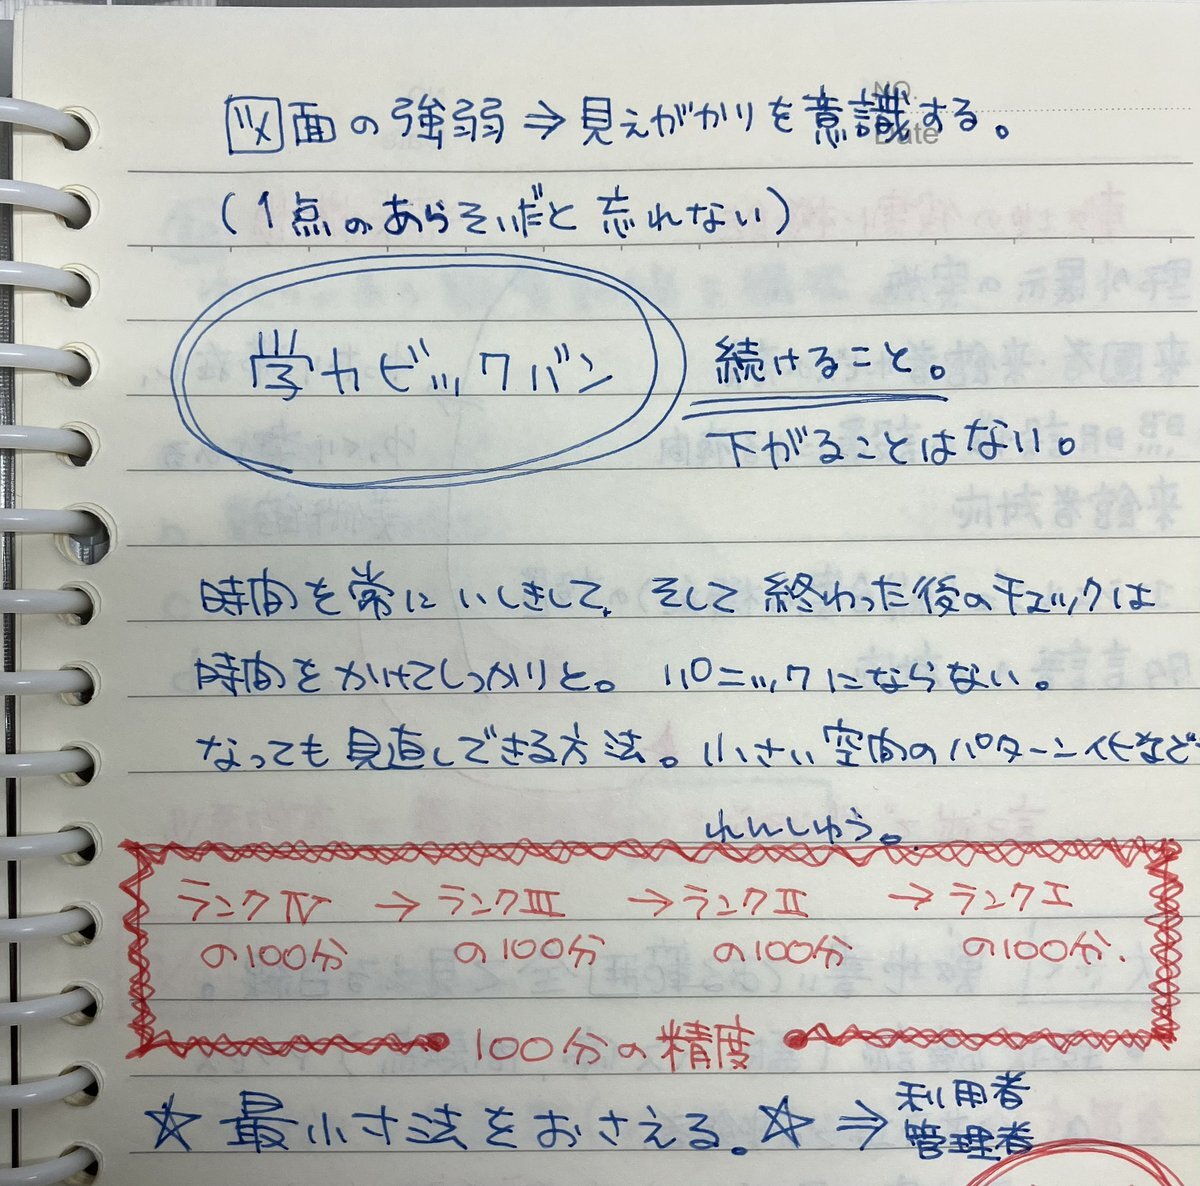 NO.
Date
図面の強弱⇒見えがかりを意識する。
(1点のあらそいだと忘れない)
学力ビックバン
続けること。
下がることはない。
時間を常にいしきして、そして終わった後のチェックは
時間をかけてしっかりと。パニックにならない。
なっても見直しできる方法。小さい空間のパターン化など
れんしゅう。
ランクⅣ → ランクⅢ → ランクⅡ → ランクⅠ
の100分 の100分 の100分 の100分.
100分の精度
☆最小寸法をおさえる。☆⇒利用者
管理者